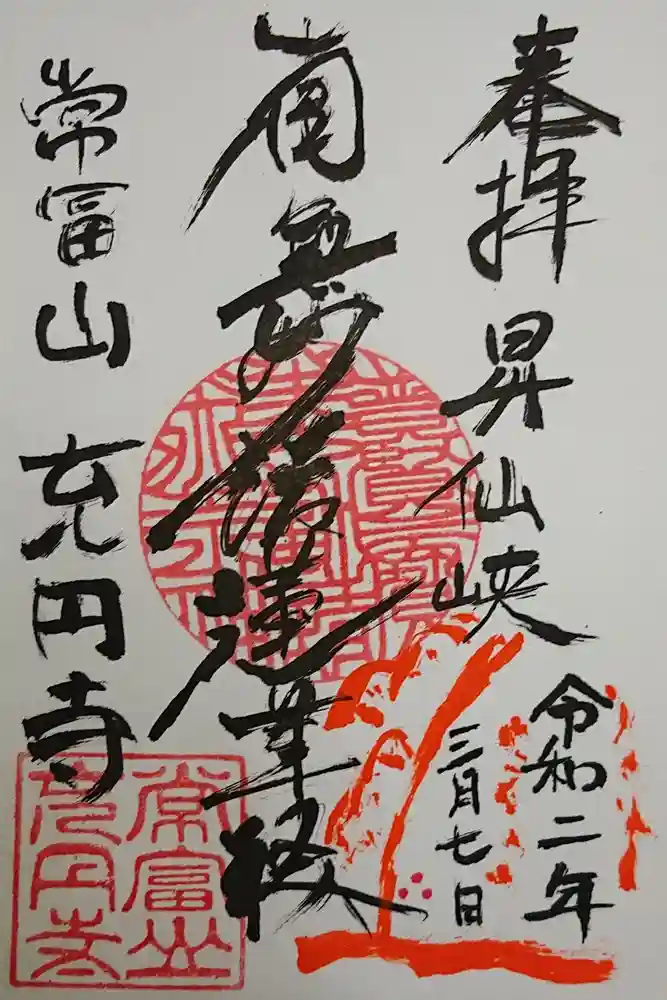 奉拝 昇仙峡
令和二年
三月七日
南無妙法蓮華経
常富山 充円寺
常富山
充円寺